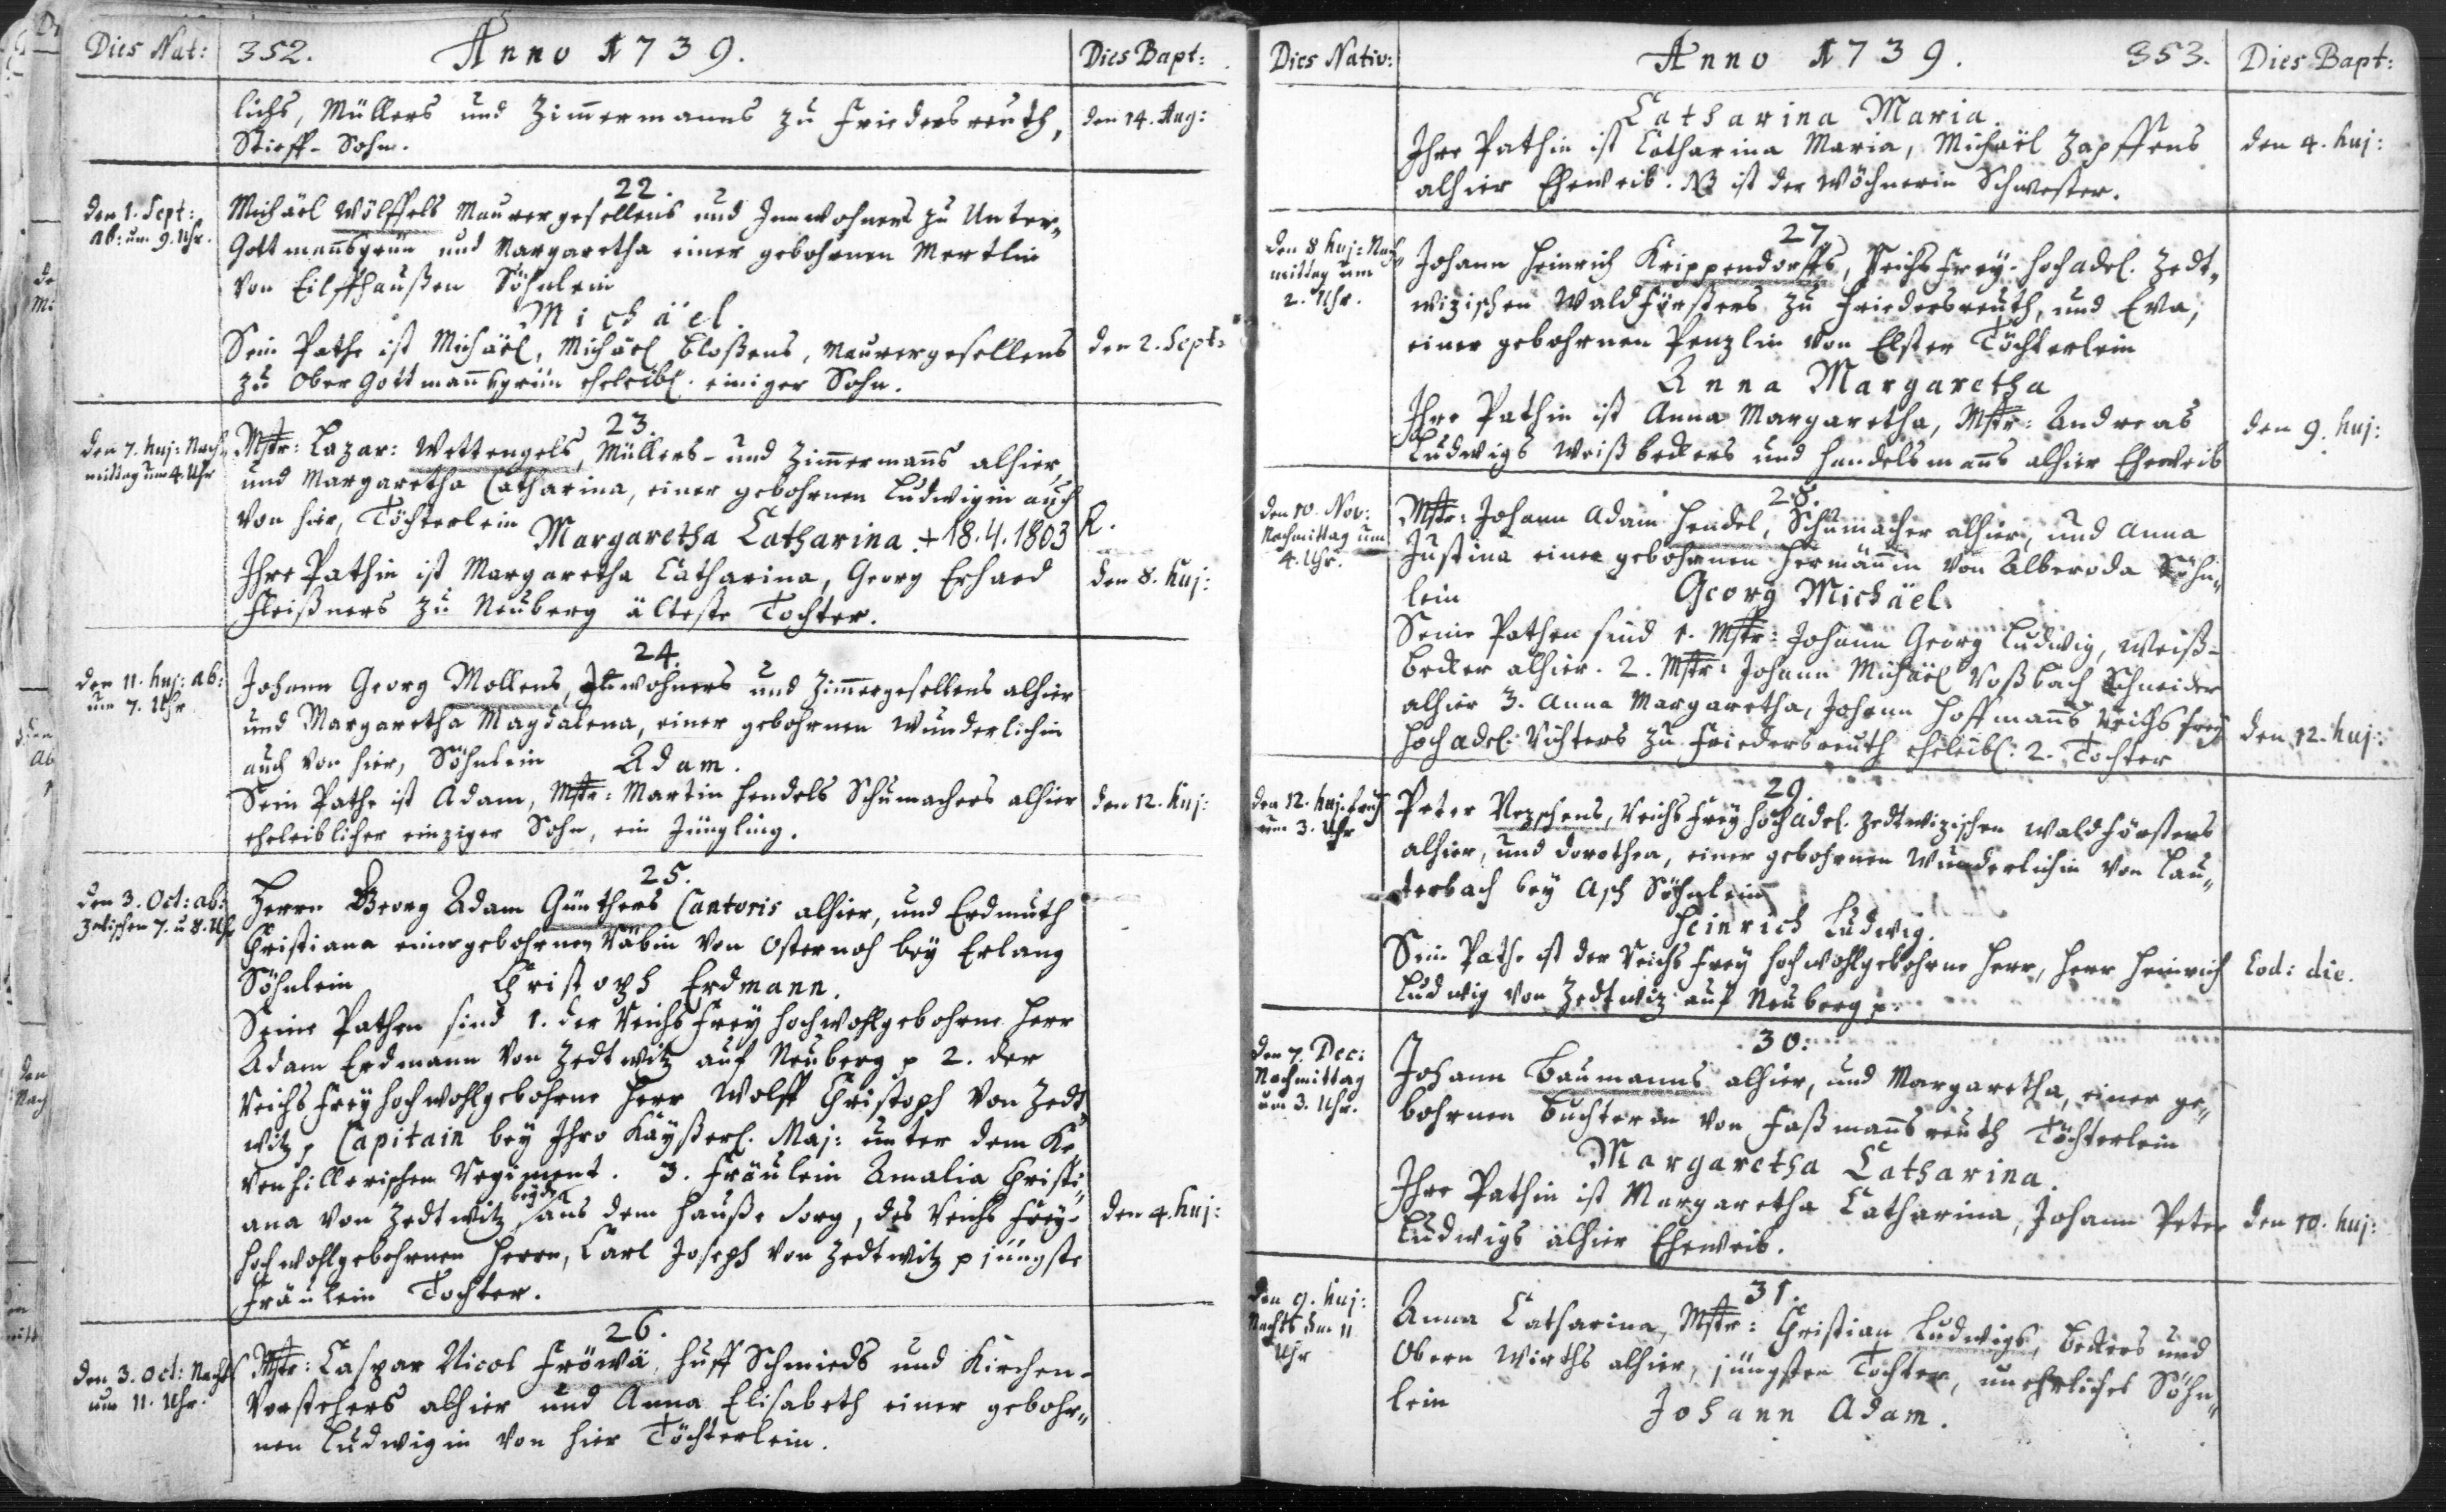 Dies Nat: 352. Anno 1739. Dies Bapt:
lichs, Müllers und Zimmermanns zu Friedersreuth, den 14. Aug:
Stieff-Sohn.
22.
den 1. Sept: ab: um 9. Uhr.
Michäel Wölffels Maurergesellens und Innwohners zu Unter„
Gottmannsgrün und Margaretha einer gebohrnen Mertlin
von Eilffhaußen Söhnlein
Michäel.
Sein Pathe ist Michäel, Michäel Bloßens, Maurergesellens den 2. Sept:
zu Ober Gottmannsgrün eheleibl. einiger Sohn.
23.
den 7. huj: Nach„
mittag um 4. Uhr
Mstr: Lazar: Wettengels, Müllers- und Zimmermanns alhier,
und Margaretha Catharina, einer gebohrnen Ludwigin auch
von hier, Töchterlein
Margaretha Catharina. + 18.4.1803 R.
Ihre Pathin ist Margaretha Catharina, Georg Erhard den 8. huj:
Fleißners zu Neuberg älteste Tochter.
24.
den 11. huj: ab:
um 7. Uhr
Johann Georg Mollens, Innwohners und Zimmergesellens alhier
und Margaretha Magdalena, einer gebohrnen Wunderlichin
auch von hier, Söhnlein Adam.
Sein Pathe ist Adam, Mstr: Martin Hendels Schumachers alhier den 12. huj:
eheleiblicher einziger Sohn, ein Jüngling.
25.
den 3. Oct: ab:
zwischen 7. u 8. Uhr
Herrn Georg Adam Günthers Cantoris alhier, und Erdmuth
Christiana einer gebohrnen Räbin von Osternoh bey Erlang
Söhnlein Christoph Erdmann.
Seine Pathen sind 1. der Reichs Frey Hochwohlgebohrne Herr
Adam Erdmann von Zedtwitz auf Neuberg p 2. der
Reichs Frey Hochwohlgebohrne Herr Wolff Christoph von Zedt„
witz p Capitain bey Ihro Kayßerl. Maj: unter dem Ke„
venhillerischen Regiment. 3. Fräulein Amalia Christi„
beyde
ana von Zedtwitz, aus dem Hauße Sorg, des Reichs Frey- den 4. huj:
hochwohlgebohrnen Herrn, Carl Joseph von Zedtwitz p jüngste
Fräulein Tochter.
26.
den 3. Oct: Nachts
um 11. Uhr.
Mstr: Caspar Nicol Fröwä, Huff Schmieds und Kirchen-
Vorstehers alhier und Anna Elisabeth einer gebohr„
nen Ludwigin von hier Töchterlein.
Dies Nativ: Anno 1739. 353. Dies Bapt:
Catharina Maria.
Ihre Pathin ist Catharina Maria, Michäel Zapffens den 4. huj:
alhier Eheweib. NB ist der Wöchnerin Schwester.
27.
den 8 huj: Nach
mittag um
2. Uhr.
Johann Heinrich Krippendorffs, Reichs Frey-Hochadel. Zedt„
wizischen Waldförsters zu Friedersreuth, und Eva,
einer gebohrnen Penzlin von Elster Töchterlein
Anna Margaretha
Ihre Pathin ist Anna Margaretha, Mstr: Andreas den 9. huj:
Ludwigs Weißbeckers und Handelsmanns alhier Eheweib
28.
den 10. Nov:
Nachmittag um
4. Uhr.
Mstr: Johann Adam Hendel, Schumacher alhier, und Anna
Justina einer gebohrnen Hermännin von Alberoda Söhn„
lein Georg Michäel.
Seine Pathen sind 1. Mstr: Johann Georg Ludwig, Weiß-
becker alhier. 2. Mstr: Johann Michäel Voßbach Schneider
alhier 3. Anna Margaretha, Johann Hoffmanns Reichsfrey
Hochadel. Richters zu Friedersreuth eheleibl: 2. Tochter den 12. huj:
29.
den 12. huj. fruh
um 3. Uhr
Peter Rezschens, Reichs Frey Hochadel. Zedtwizischen Waldförsters
alhier, und Dorothea, einer gebohrnen Wunderlichin von Lau„
terbach bey Asch Söhnlein
Heinrich Ludwig.
Sein Pathe ist der Reichs Frey Hochwohlgebohrne Herr, Herr Heinrich Eod: die.
Ludwig von Zedtwiz auf Neuberg p.
30.
den 7. Dec:
Nachmittag
um 3. Uhr.
Johann Baumanns alhier, und Margaretha, einer ge„
bohrnen Buchterin von Faßmannsreuth Töchterlein
Margaretha Catharina.
Ihre Pathin ist Margaretha Catharina, Johann Peter den 10. huj:
Ludwigs alhier Eheweib.
31.
den 9. huj:
Nachts um 11
Uhr
Anna Catharina, Mstr: Christian Ludwigs, Beckers und
Obern Wirths alhier, jüngsten Tochter, unehrliches Söhn„
lein
Johann Adam.